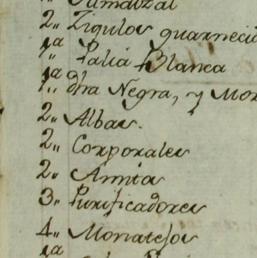 2,, Zigulos guarneci
1a Palia Blanca
1,, dha Negra, y Mor
2,, Albas.
2,, Corporales
2,, Amitos
3,, Purificadores
4,, Monatejos
1a